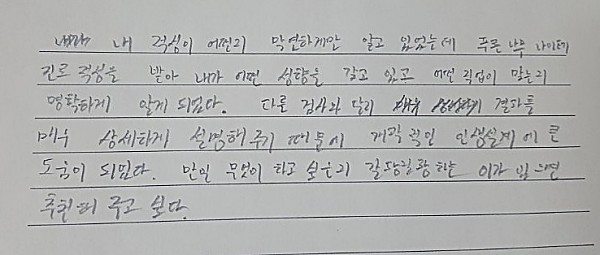 내 적성이 어떤지 막연하게만 알고 있었는데 푸른나무 나이테
진로적성을 받아 내가 어떤 성향을 갖고 있고 어떤 직업이 맞는지
명확하게 알게 되었다. 다른 검사와 달리 결과를
매우 상세하게 설명해 주기 때문에 개략적인 인생설계에 큰
도움이 되었다. 만일 무엇이 하고 싶은지 갈팡질팡하는 이가 있으면
추천해 주고 싶다.